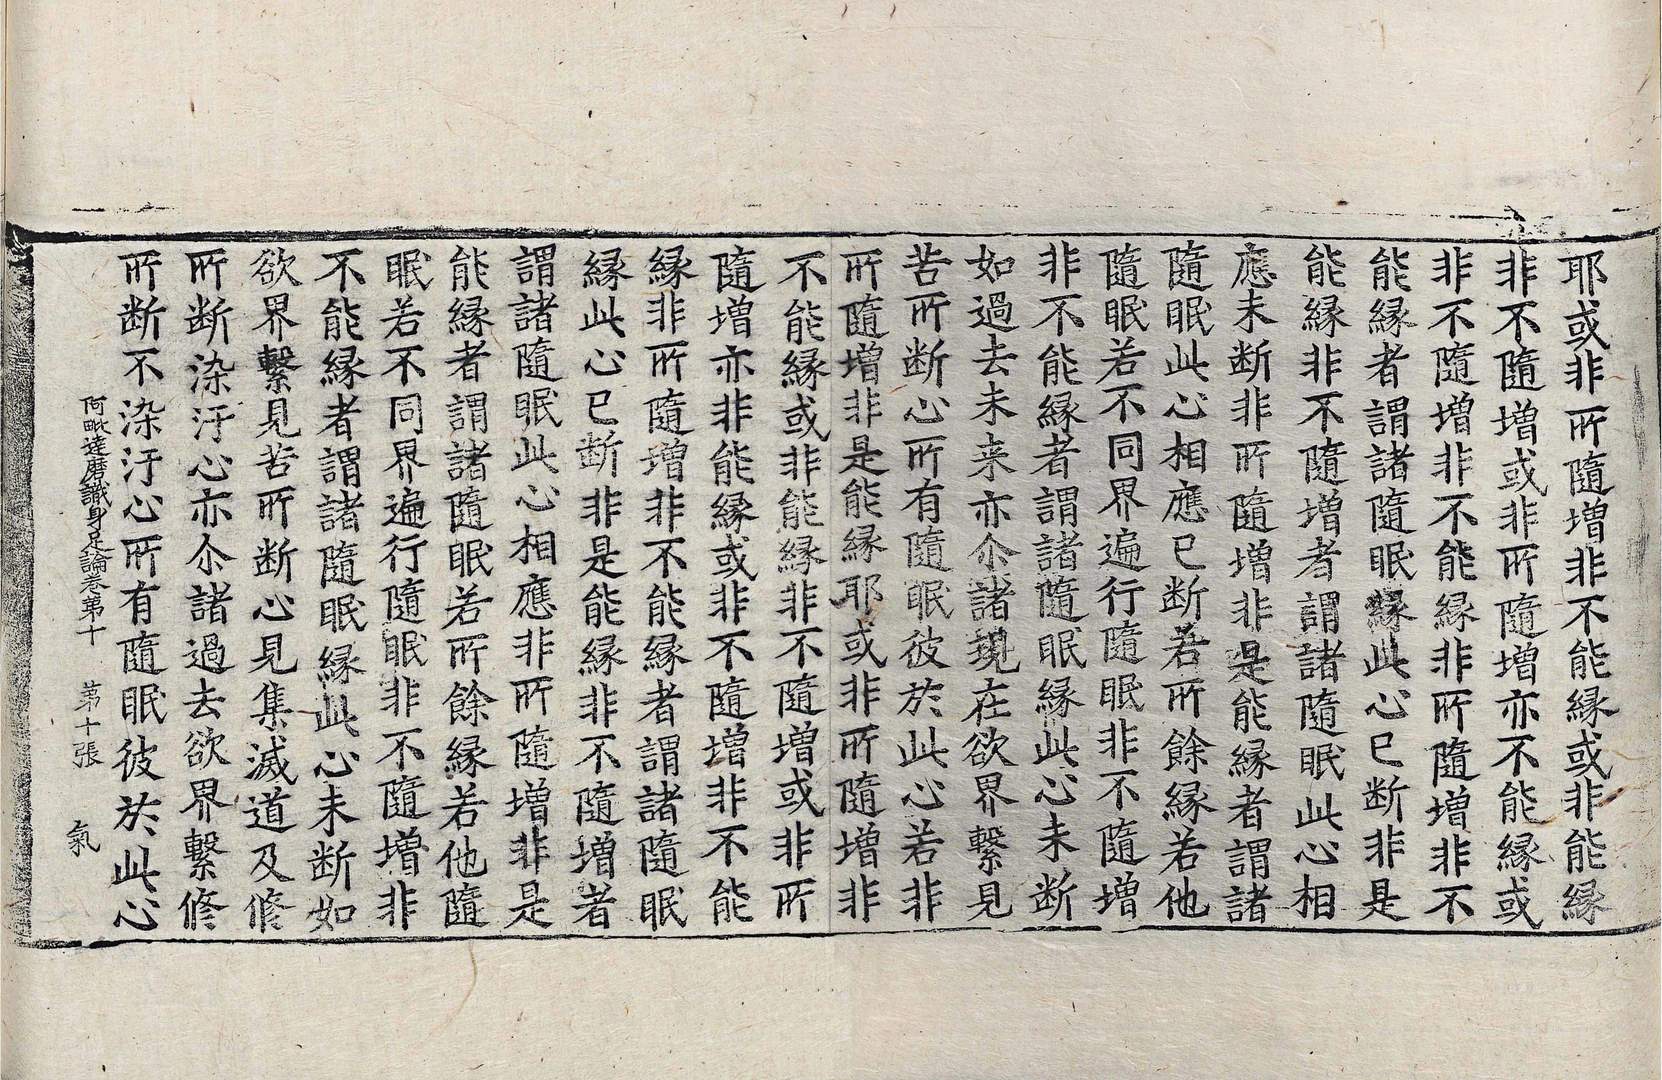 耶或非所隨増非不能縁或非能縁
非不隨増或非所隨増亦不能縁或
非不隨増非不能縁非所隨増非不
能縁者謂諸隨眠縁此心已断非是
能縁非不隨増者謂諸隨眠此心相
應未断非所隨増非是能縁者謂諸
隨眠此心相應已断若所餘縁若他
隨眠若不同界遍行隨眠非不隨増
非不能縁者謂諸隨眠縁此心未断
如過去未来亦尒諸現在欲界繫見
苦所断心所有隨眠彼於此心若非
所隨増非是能縁耶或非所隨増非
不能縁或非能縁非不隨増或非所
隨増亦非能縁或非不隨増非不能
縁非所隨増非不能縁者謂諸隨眠
縁此心已断非是能縁非不隨増者
謂諸隨眠此心相應非所隨増非是
能縁者謂諸隨眠若所餘縁若他隨
眠若不同界遍行隨眠非不隨増非
不能縁者謂諸隨眠縁此心未断如
欲界繫見苦所断心見集滅道及修
所断染汙心亦尒諸過去欲界繫修
所断不染汙心所有隨眠彼於此心
阿毗達磨識身足論卷苐十 苐十張 氣